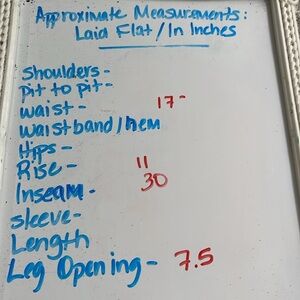 Approximate Measurements:
Laid Flat / In Inches
Shoulders -
pit to pit -
waist - 17"
waistband / hem
Hips -
Rise - 11
Inseam - 30
sleeve -
Length
Leg Opening - 7.5